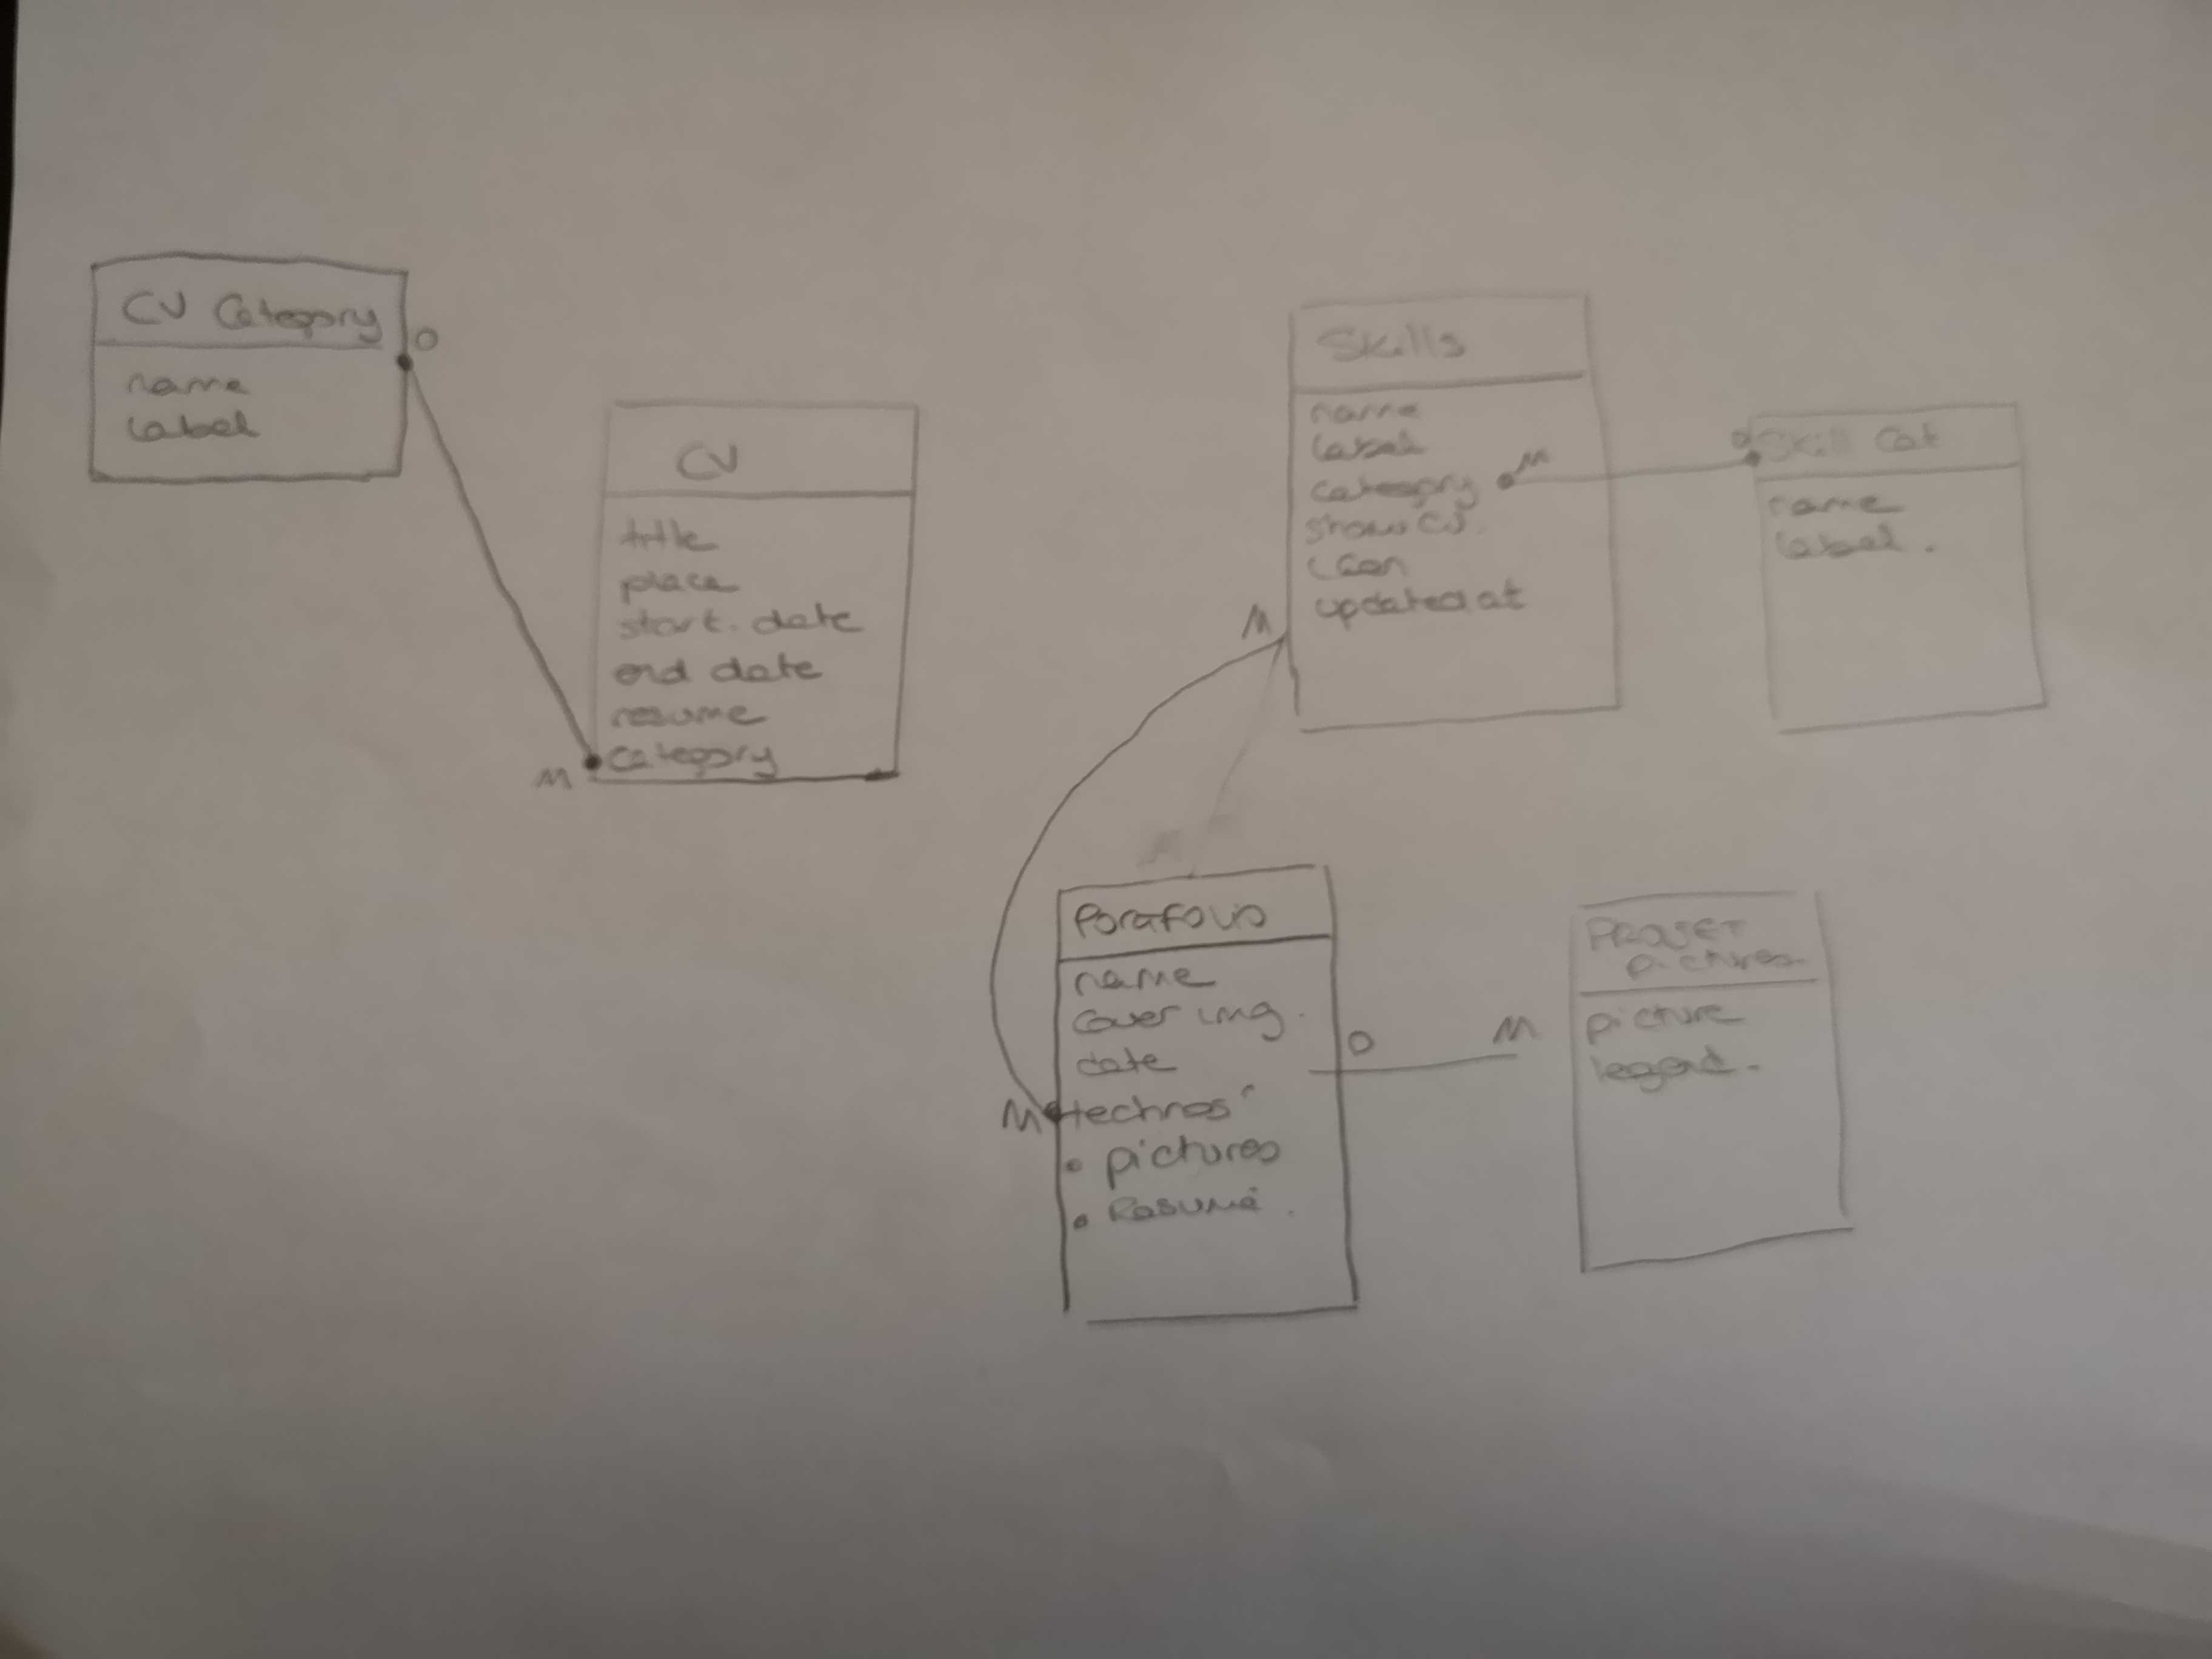 CV Category
O
name
label
CV
title
place
start. date
end date
resume
category
M
Skills
name
label
category
M
show CV.
icon
updated at
M
O
Skill Cat
name
label.
name
cover img.
date
M
technos
pictures
Resumé.
O
M
PROJET
pictures
picture
legend.